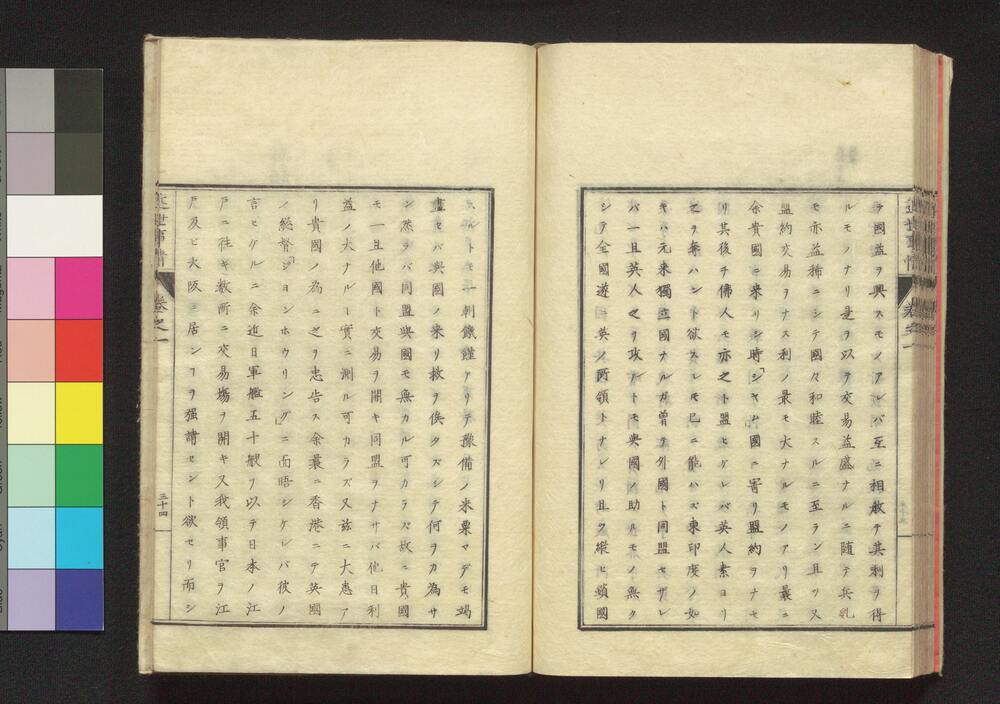 ヲ國益ヲ興スモノアレバ互ニ相救テ其利ヲ得
ルモノナリ是ヲ以テ交易益盛ナルニ随テ兵乱
モ亦益稀ニシテ國々和睦スルニ至ラン且ツ又
盟約交易ヲナス利ノ最モ大ナルモノアリ最ニ
余貴國ニ来リシ時「シヤム」國ニ寄リ盟約ヲナセ
リ其後チ佛人モ亦之ト盟ヒケレバ英人素ヨリ
之ヲ奪ハント欲スレモ已ニ能ハズ東印度ノ如
キハ元来獨立國ナルガ曽テ外國ト同盟セザレ
バ一旦英人之ヲ攻ルトモ與國ノ助ルモノ無ク
シテ全國遂ニ英ノ所領トナレリ且ツ縦ヒ鎖國
スルトモ一朝饑饉アリテ豫備ノ米粟マデモ竭
盡セバ與國ノ来リ救ヲ俟タズシテ何ヲカ為サ
ン然ラバ同盟與國モ無カル可カラズ故ニ貴國
モ一旦他國ト交易ヲ開キ同盟ヲナサバ他日利
益ノ大ナルー實ニ測ル可カラズ又茲ニ大患ア
リ貴國ノ為ニ之ヲ忠告ス余最ニ香港ニテ英國
ノ総督「ジョンホウリング」ニ面晤シケレバ彼ノ
言ヒケルニ余近日軍艦五十艘ヲ以テ日本ノ江
戸ニ往キ数所ニ交易場ヲ開キ又我領事官ヲ江
戸及ビ大阪ニ居ンヿヲ强請セント欲セリ而シ
近世事情
卷之一
三十四